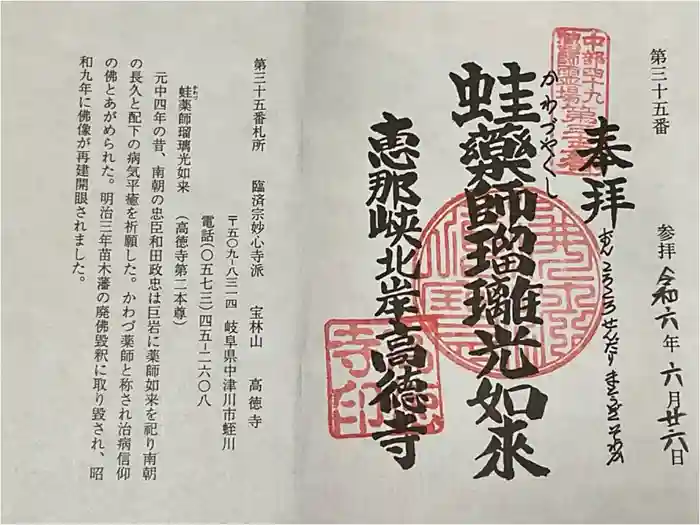 第三十五番
参拝 令和六年六月廿六日
中部四十九
薬師霊場第三十五番
奉拝
おんころころせんだりまとうぎそわか
かわづやくし
蛙藥師瑠璃光如来
恵那峡北岸高徳寺
寺印
第三十五番札所 臨済宗妙心寺派 宝林山 高徳寺
〒五〇九-八二三四 岐阜県中津川市蛭川
電話(〇五七三)四五-二六〇八
蛙薬師瑠璃光如来 (高徳寺第二本尊)
かわづ
元中四年の昔、南朝の忠臣和田政忠は巨岩に薬師如来を祀り南朝
の長久と配下の病気平癒を祈願した。かわづ薬師と称され治病信仰
の佛とあがめられた。明治三年苗木藩の廃佛毀釈に取り毀され、昭
和九年に佛像が再建開眼されました。